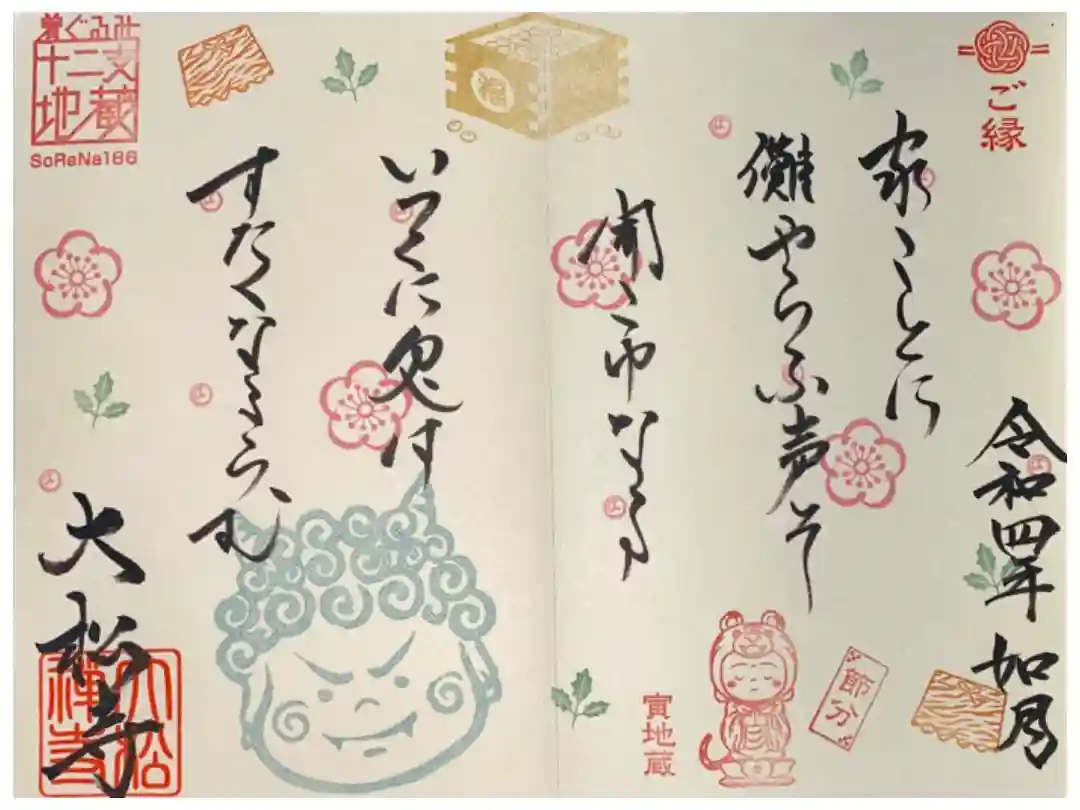 ご縁
令和四年 如月
家ことに
儺やらふ声そ
聞こゆなる
いつくに鬼は
すたくなるらむ
大松寺
大松禅寺
福
節分
寅地蔵
着ぐるみ
十二支
地蔵
SoReNa186